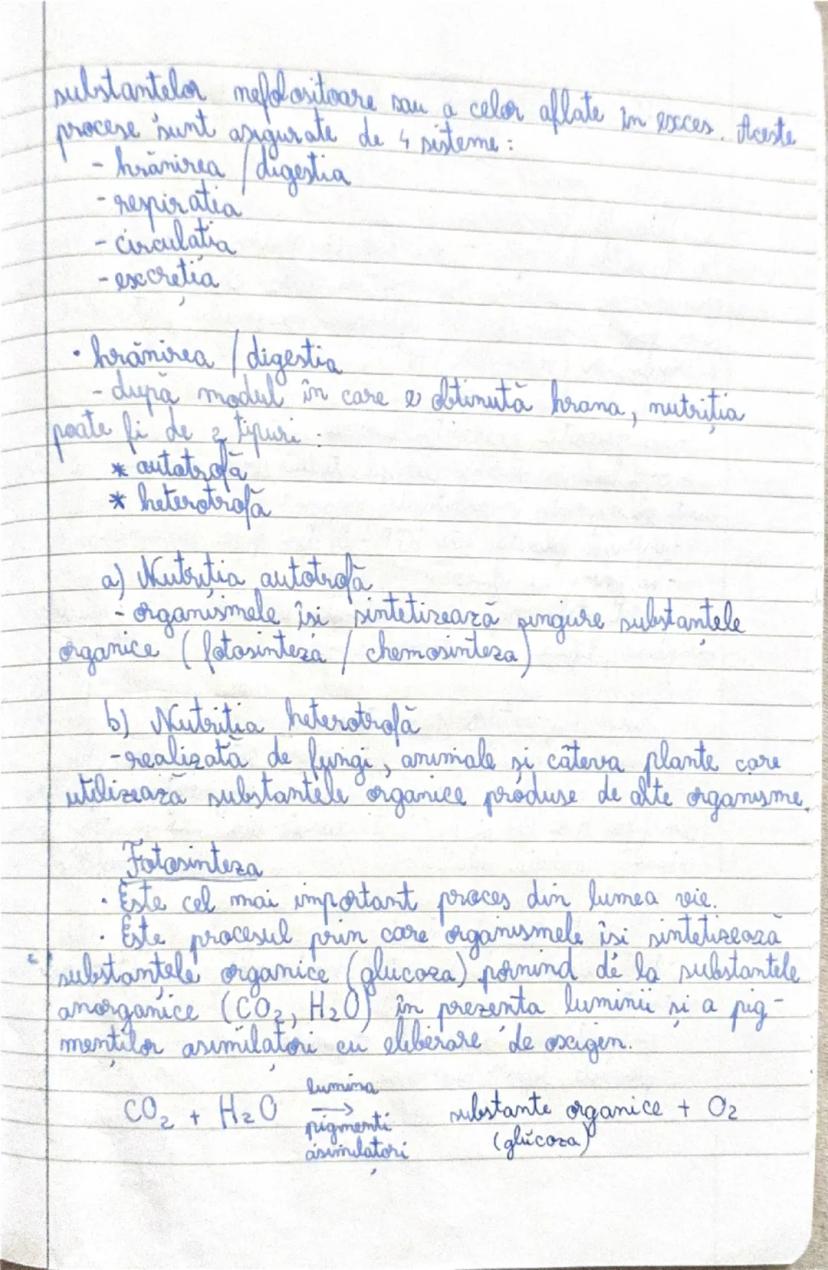 substanțelor nefolositoare sau a celor aflate în exces. Aceste
procese sunt asigurate de 4 sisteme:
- hrănirea / digestia
- respiratia
- circulatia
- excreția
• hrănirea / digestia
- după modul în care e obtinută hrana, nutriția
poate fi de 2 tipuri :
* autotrofă
* heterotrofă
a) Nutritia autotrofă
- organismele își sintetizează singure substanțele
organice (fotosinteza / chemosinteza)
b) Nutritia heterotrofă
- realizată de fungi, animale și câteva plante care
utilizează substantele organice produse de alte organisme.
Fotosinteza
• Este cel mai important proces din lumea vie.
• Este procesul prin care organismele își sintetizează
substanțele organice (glucoza) pornind de la substantele
anorganice (CO₂, H₂O) în prezenta luminii și a pig-
menților asimilatori cu eliberare de oxigen.
lumina
CO₂ + H₂O → substante organice + O₂
pigmenti (glucoza)
asimilatori